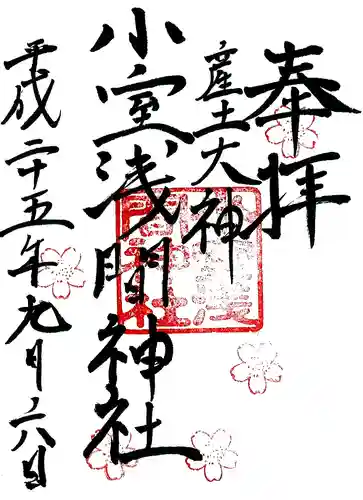 奉拝
産土大神
小室浅間神社
平成二十五年九月六日